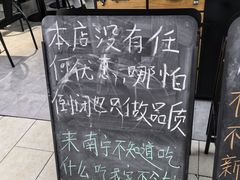 本店没有任
何优惠,哪怕
倒闭也只做品质
来南宁不知道吃
什么吃
不
新